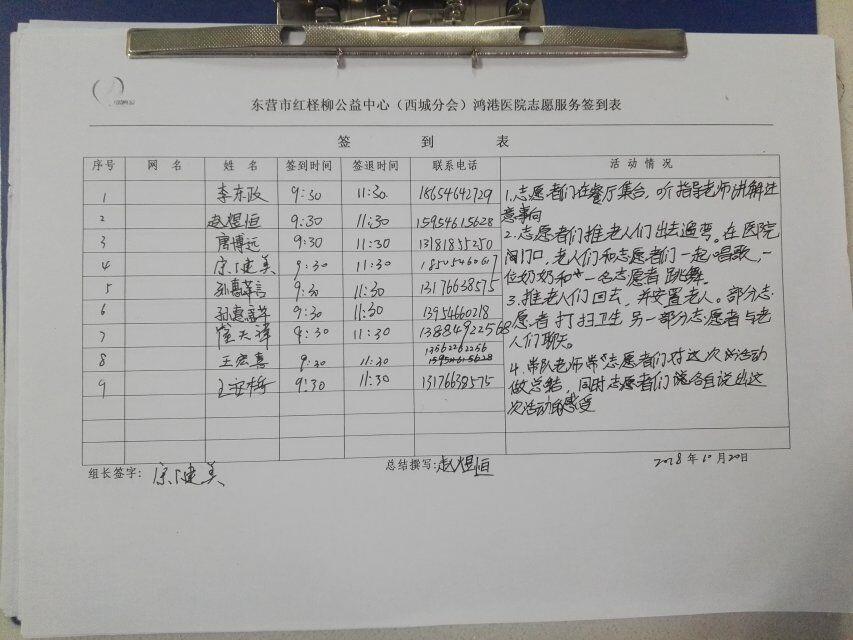 东营市红柽柳公益中心（西城分会）鸿港医院志愿服务签到表
签 到 表
序号 网 名 姓 名 签到时间 签退时间 联系电话 活 动 情 况
1 李东政 9:30 11:30 18654642729
2 赵煜恒 9:30 11:30 15954615628
3 唐博远 9:30 11:30 13181835250
4 宗健美 9:30 11:30
5 9:30 11:30 13176638575
6 9:30 11:30 13954660218
7 9:30 11:30 13884922568
8 王宏嘉 9:30 11:30
9 9:30 11:30 13176638575
1.志愿者们在餐厅集合，听指导老师讲解注
意事向
2.志愿者们推老人们出去遛弯。在医院
门口，老人们和志愿者们一起唱歌，一
位奶奶和一名志愿者跳舞。
3.推老人们回去，并安置老人。部分志
愿者打扫卫生 另一部分志愿者与老
人们聊天。
4.带队老师带志愿者们对这次的活动
做总结，同时志愿者们 各自说出这
次活动的感受
组长签字：宗健美 总结撰写：赵煜恒 2018年10月20日